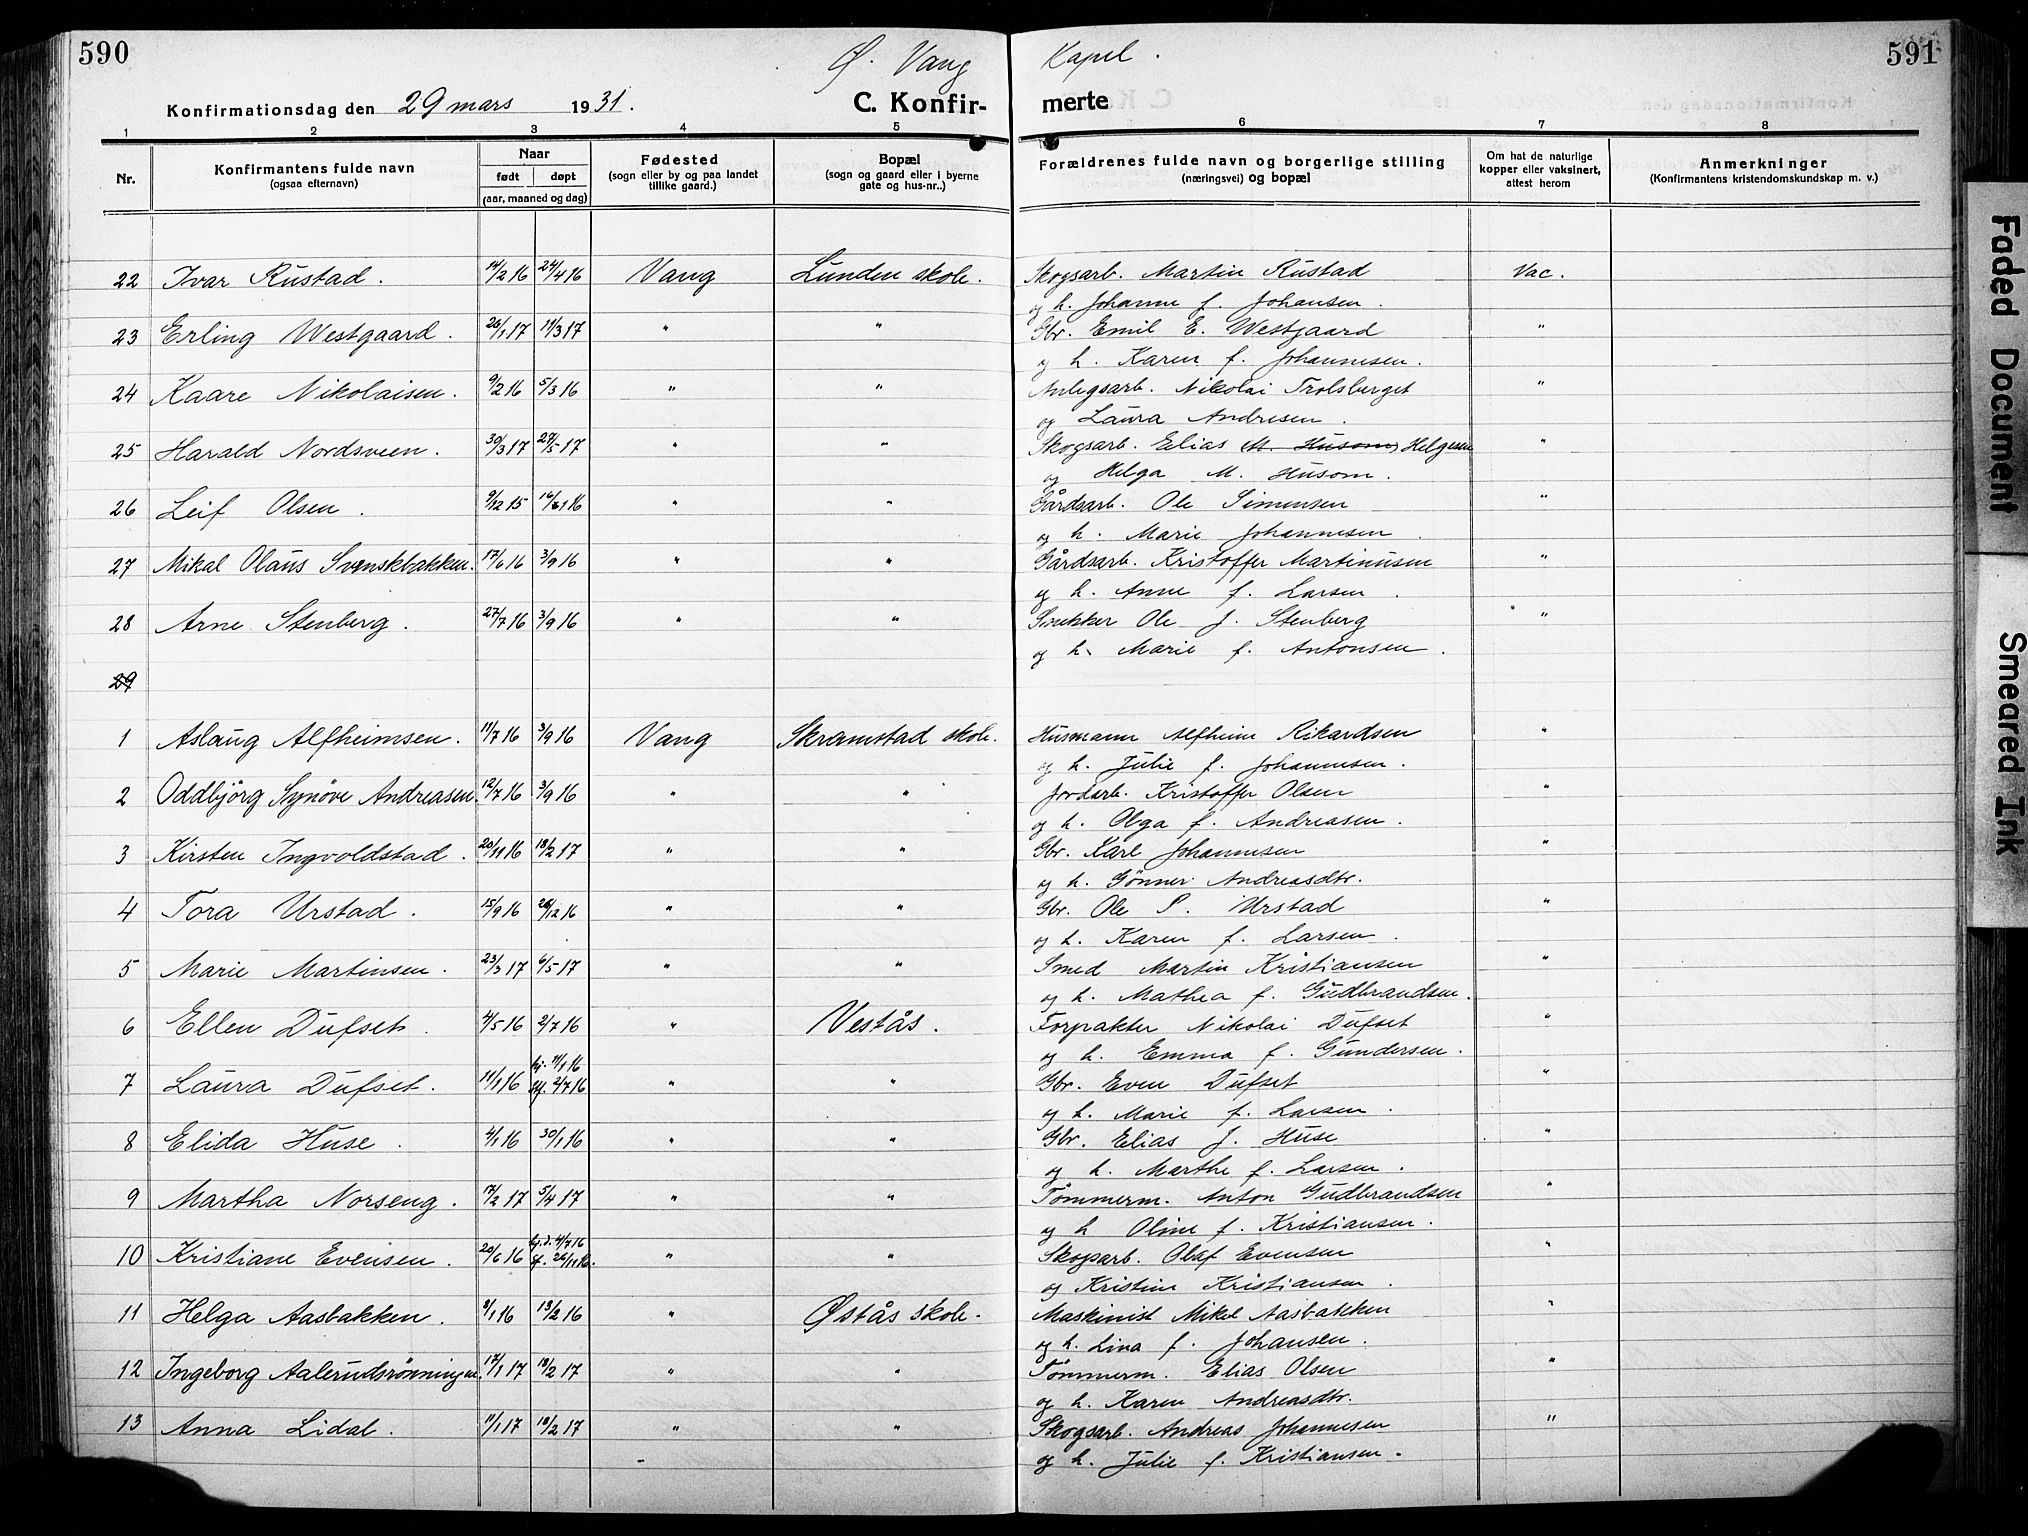 590
Ø. Vang Kapel.
591
Konfirmationsdag den 29 mars 1931.
C. Konfirmerte
1 2 3 4 5 6 7 8
Nr.
Konfirmantens fulde navn
(ogsaa efternavn)
Naar
født døpt
(aar, maaned og dag)
Fødested
(sogn eller by og paa landet
tillike gaard.)
Bopæl
(sogn og gaard eller i byerne
gate og hus-nr..)
Forældrenes fulde navn og borgerlige stilling
(næringsvei) og bopæl
Om hat de naturlige
kopper eller vaksinert,
attest herom
Anmerkninger
(Konfirmantens kristendomskundskap m. v.)
22 Ivar Rustad. 14/2 16 24/4 16 Vang Lunden skole. Skogsarb. Martin Rustad Vac.
og h. Johanne f. Johansen.
23 Erling Westgaard. 26/1 17 11/3 17 " " Gbr. Emil E. Westgaard "
og h. Karen f. Johannesen.
24 Kaare Nikolaisen. 9/2 16 5/3 16 " " Anlegsarb. Nikolai Trolsberget "
og Laura Andresen.
25 Harald Nordsveen. 30/3 17 27/5 17 " " Skogsarb. Elias M. Husom, Helgesen "
og Helga M. Husom.
26 Leif Olsen. 9/12 15 16/1 16 " " Gårdsarb. Ole Simensen "
og h. Marie Johannesen.
27 Mikal Olaus Svenskbakken. 17/6 16 3/9 16 " " Gårdsarb. Kristoffer Martinusen "
og h. Anne f. Larsen.
28 Arne Stenberg. 27/7 16 3/9 16 " " Snekker Ole J. Stenberg "
og h. Marie f. Antonsen.
29
1 Aslaug Alfheimsen. 11/7 16 3/9 16 Vang Skramstad skole. Husmann Alfheim Rikardsen "
og h. Julie f. Johannesen.
2 Oddbjörg Synöve Andreasen. 12/7 16 3/9 16 " " Jordarb. Kristoffer Olsen "
og h. Olga f. Andreasen.
3 Kirsten Ingvoldstad. 20/11 16 18/2 17 " " Gbr. Karl Johannesen "
og h. Gönner Andreasdtr.
4 Tora Urstad. 15/9 16 26/12 16 " " Gbr. Ole S. Urstad "
og h. Karen f. Larsen.
5 Marie Martinsen. 23/3 17 6/5 17 " " Smed Martin Kristiansen "
og h. Mathea f. Gudbrandsen.
6 Ellen Dufset. 4/5 16 2/7 16 " Vestås. Forpakter Nikolai Dufset "
og h. Emma f. Gundersen.
7 Laura Dufset. 11/1 16 hj. 11/1 16 " " Gbr. Even Dufset "
2/7 16
og h. Marie f. Larsen.
8 Elida Huse. 4/1 16 30/1 16 " " Gbr. Elias J. Huse "
og h. Marthe f. Larsen.
9 Martha Norseng. 17/2 17 5/4 17 " " Tömmerm. Anton Gudbrandsen "
og h Oline f. Kristiansen.
10 Kristiane Evensen. 20/6 16 hj.d. 4/7 16 " " Skogsarb. Olaf Evensen "
26/11 16.
og Kristine Kristiansen.
11 Helga Aasbakken. 8/1 16 13/2 16 " Østås skole. Maskinist Mikal Aasbakken "
og h. Lina f. Johansen.
12 Ingeborg Aalerudsrönningen. 17/1 17 18/2 17 " " Tömmerm. Elias Olsen "
og h. Karen Andreasdtr.
13 Anna Lidal. 11/1 17 18/2 17 " " Skogsarb. Andreas Johannesen "
og h. Julie f. Kristiansen.
Faded Document
Smeared Ink